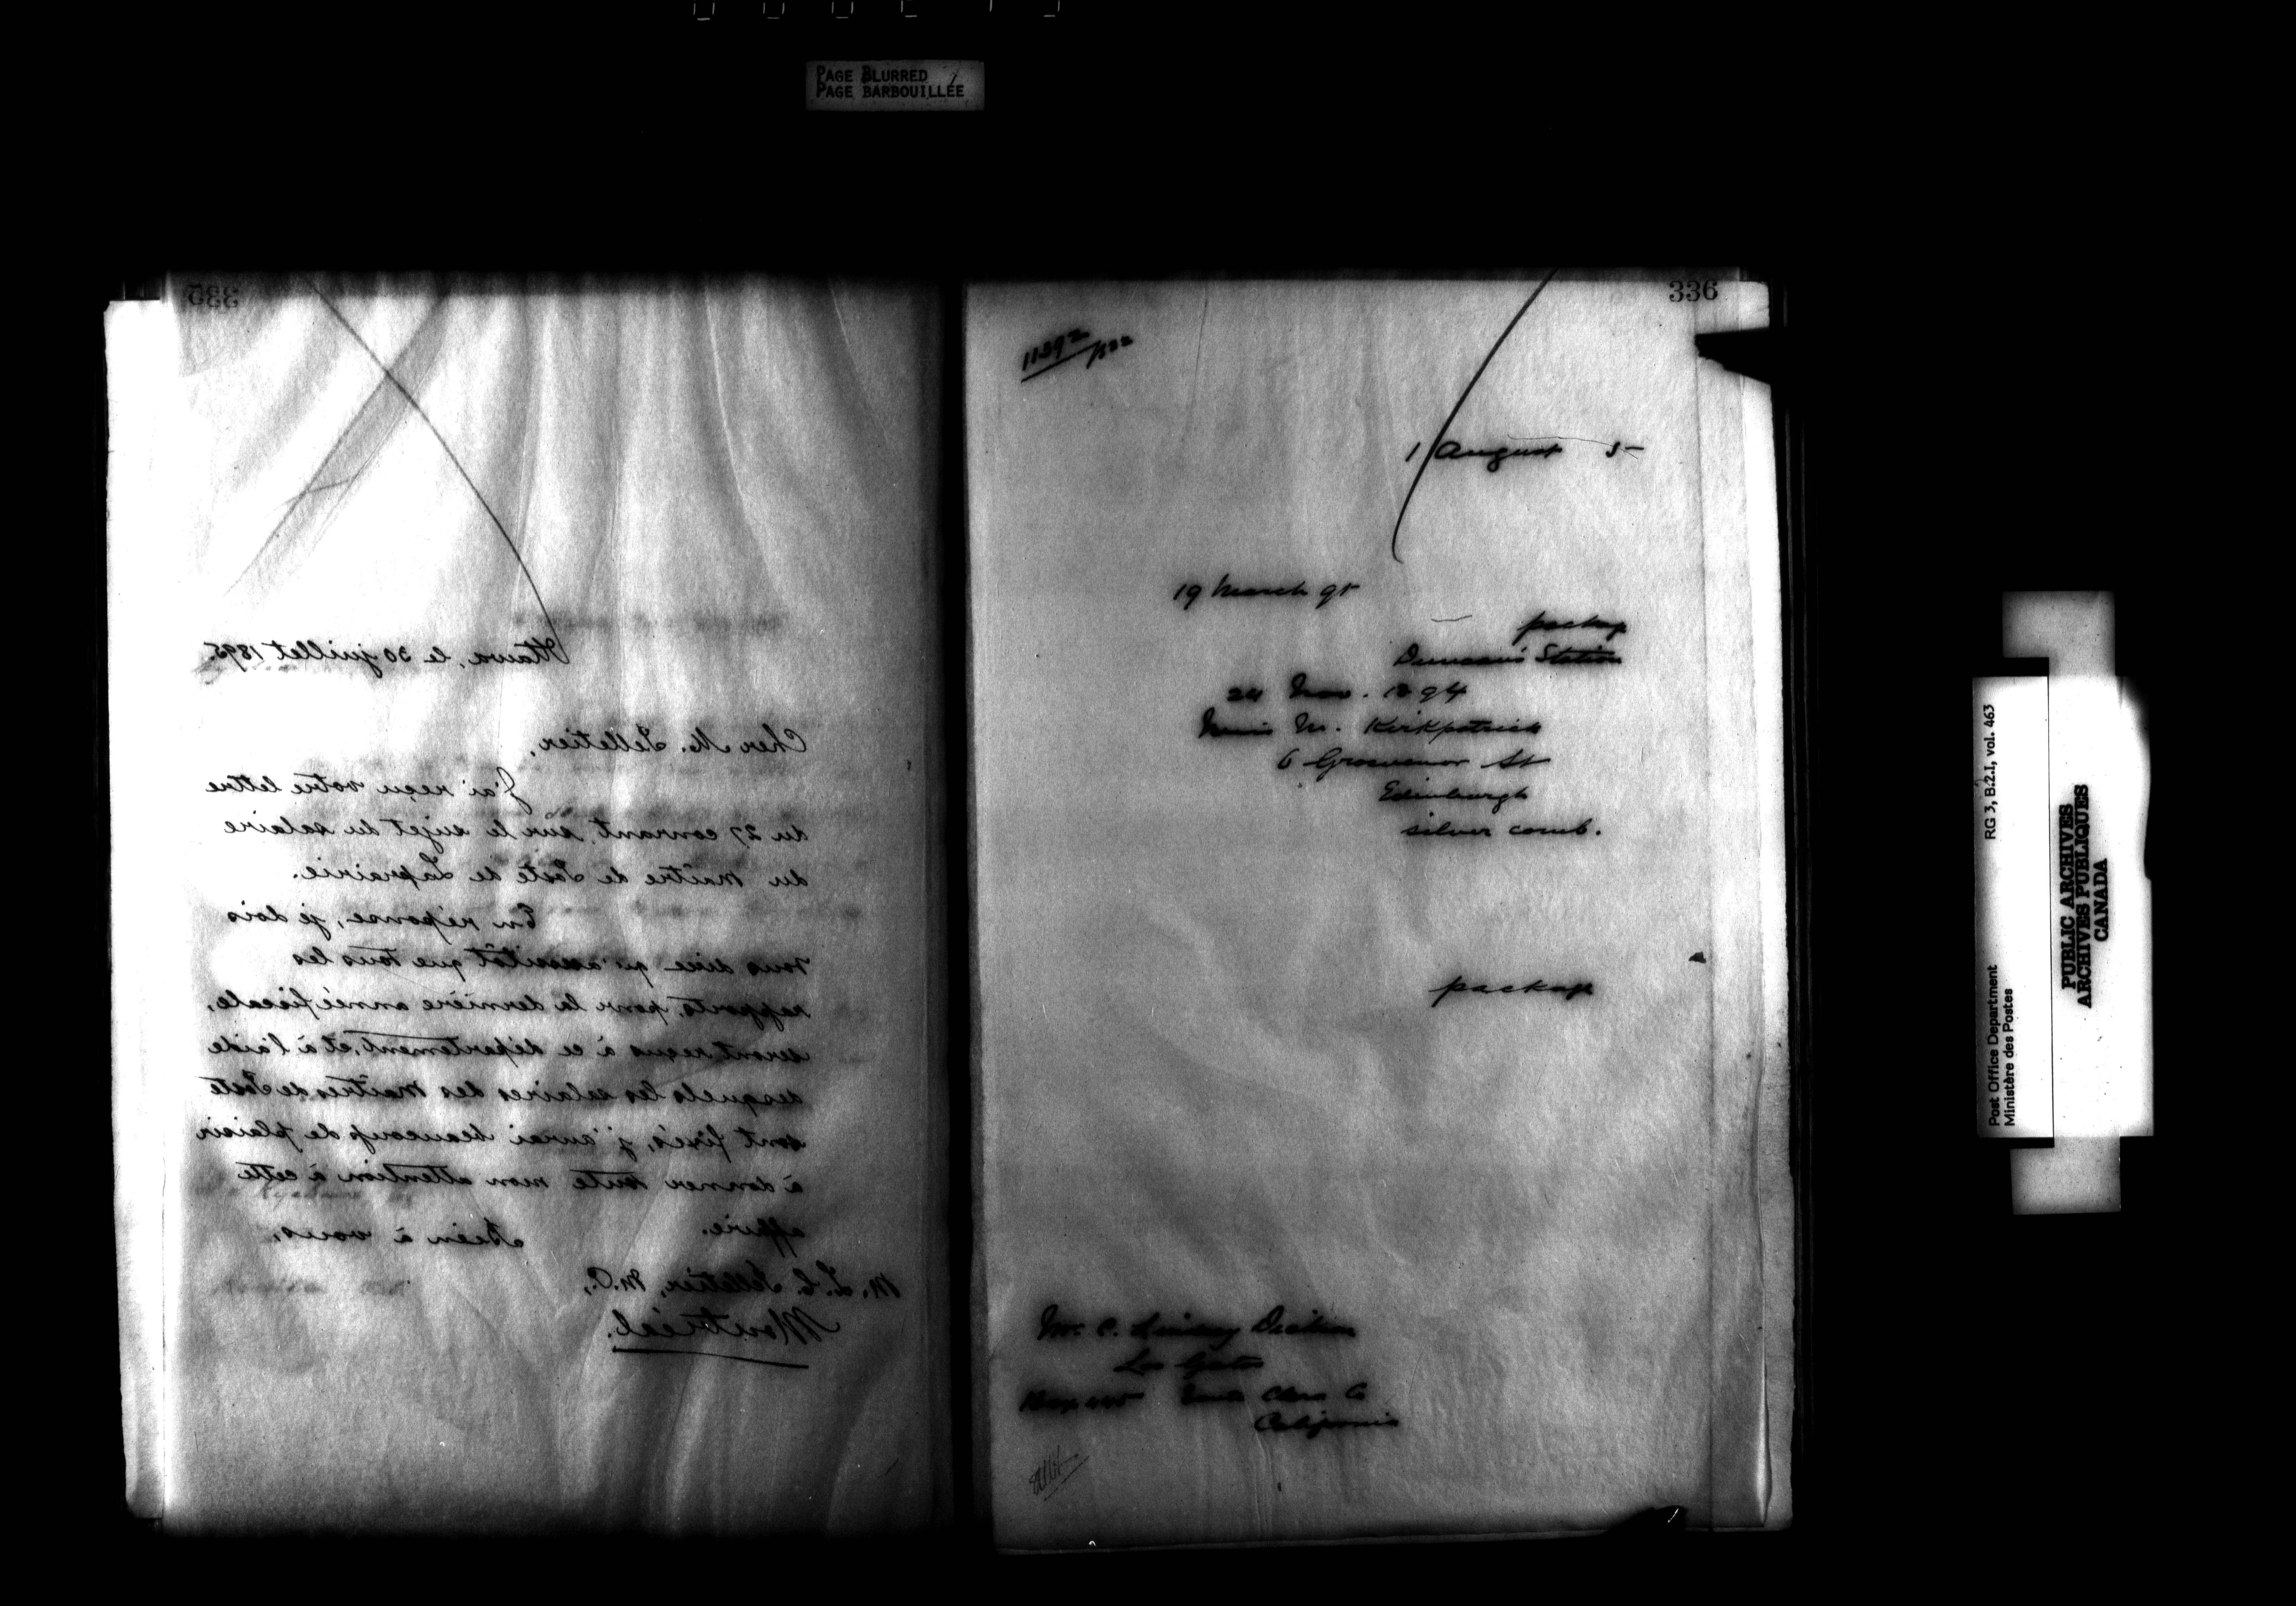 PAGE BLURRED
PAGE BARBOUILLÉE
335
Ottawa, le 30 juillet 1895.
Cher M. Pelletier,
J'ai reçu votre lettre
du 27 courant, sur le sujet du salaire
du Maître de Poste de Laprairie.
En réponse, je dois
vous dire qu'aussitôt que tous les
rapports, pour la dernière année fiscale,
seront reçus à ce département, et à l'aide
desquels les salaires des Maîtres de Poste
sont fixés, j'aurai beaucoup de plaisir
à donner toute mon attention à cette
affaire.
Bien à vous,
M. L. C. Pelletier, M.P.,
Montréal.
336
1 August 5
19 March 95
package
Duncan's Station
24 Nov. 1894
M. Kirkpatrick
6 Grosvenor St
Edinburgh
silver comb.
package
Mr. C. Lindsay
Los Gatos
Box Santa Clara Co
California
Post Office Department RG 3, B.2.I, vol. 463
Ministère des Postes
PUBLIC ARCHIVES
ARCHIVES PUBLIQUES
CANADA